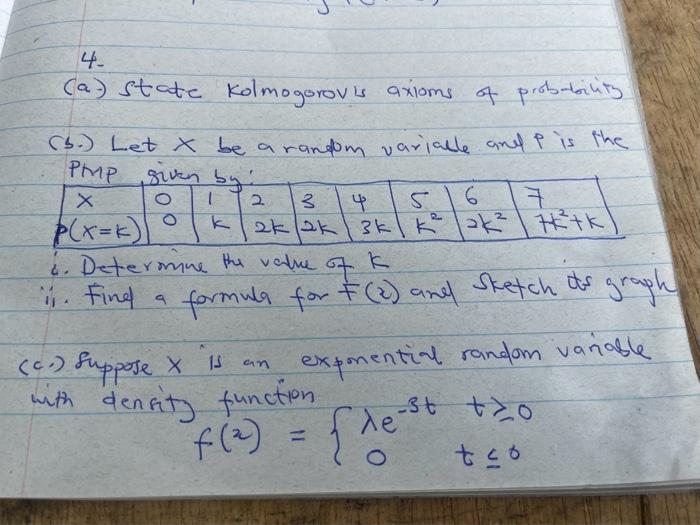 4.
(a.) State Kolmogorov's axioms of probability
(b.) Let X be a random variable and P is the
PMP given by:
X 0 1 2 3 4 5 6 7
P(X=K) 0 K 2K 2K 3K K² 2K² 7K²+K
i. Determine the value of K
ii. Find a formula for F(2) and sketch its graph
(c.) Suppose X is an exponential random variable
with density function
f(2) = { λe^-3t t≥0
0 t≤0